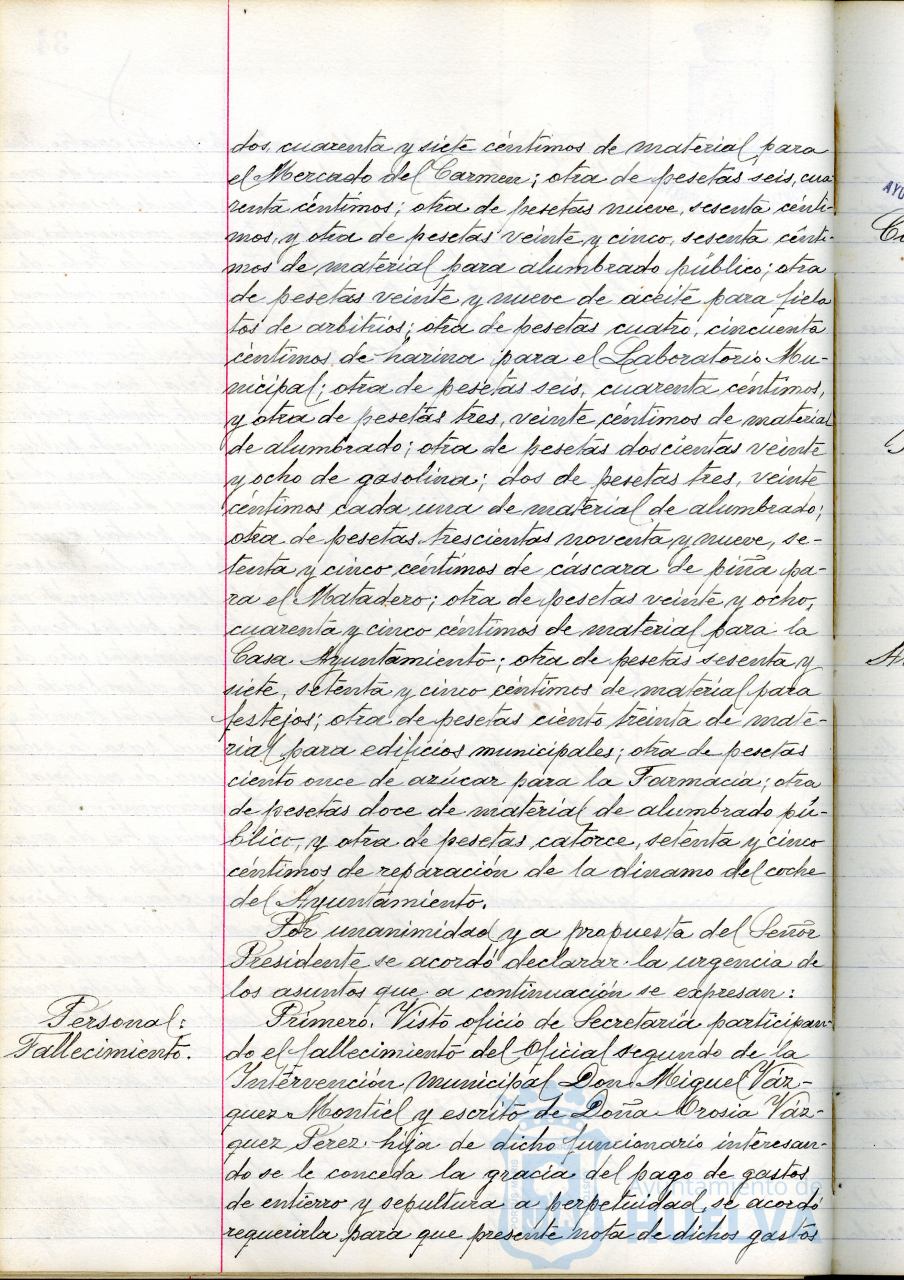 dos, cuarenta y siete céntimos de material para
el Mercado del Carmen; otra de pesetas seis, cua-
renta céntimos; otra de pesetas nueve, sesenta cénti-
mos, y otra de pesetas veinte y cinco, sesenta cénti-
mos de material para alumbrado público; otra
de pesetas veinte y nueve de aceite para fiela
tos de arbitrios; otra de pesetas cuatro, cincuenta
céntimos de harina para el Laboratorio Mu-
nicipal; otra de pesetas seis, cuarenta céntimos,
y otra de pesetas tres, veinte céntimos de material
de alumbrado; otra de pesetas doscientas veinte
y ocho de gasolina; dos de pesetas tres, veinte
céntimos cada una de material de alumbrado;
otra de pesetas trescientas noventa y nueve, se-
tenta y cinco céntimos de cáscara de piña pa-
ra el Matadero; otra de pesetas veinte y ocho,
cuarenta y cinco céntimos de material para la
Casa Ayuntamiento; otra de pesetas sesenta y
siete, setenta y cinco céntimos de material para
festejos; otra de pesetas ciento treinta de mate-
rial para edificios municipales; otra de pesetas
ciento once de azúcar para la Farmacia; otra
de pesetas doce de material de alumbrado pú-
blico, y otra de pesetas catorce, setenta y cinco
céntimos de reparación de la dinamo del coche
del Ayuntamiento.
Por unanimidad y a propuesta del Señor
Presidente se acordó declarar la urgencia de
los asuntos que a continuación se expresan:
Personal:
Fallecimiento.
Primero. Visto oficio de Secretaría participan-
do el fallecimiento del Oficial segundo de la
Intervención municipal Don Miguel Váz-
quez Montiel y escrito de Doña Orosia Váz-
quez Pérez hija de dicho funcionario interesan-
do se le conceda la gracia del pago de gastos
de entierro y sepultura a perpetuidad, se acordó
requerirla para que presente nota de dichos gastos
Ayuntamiento de
HUELVA